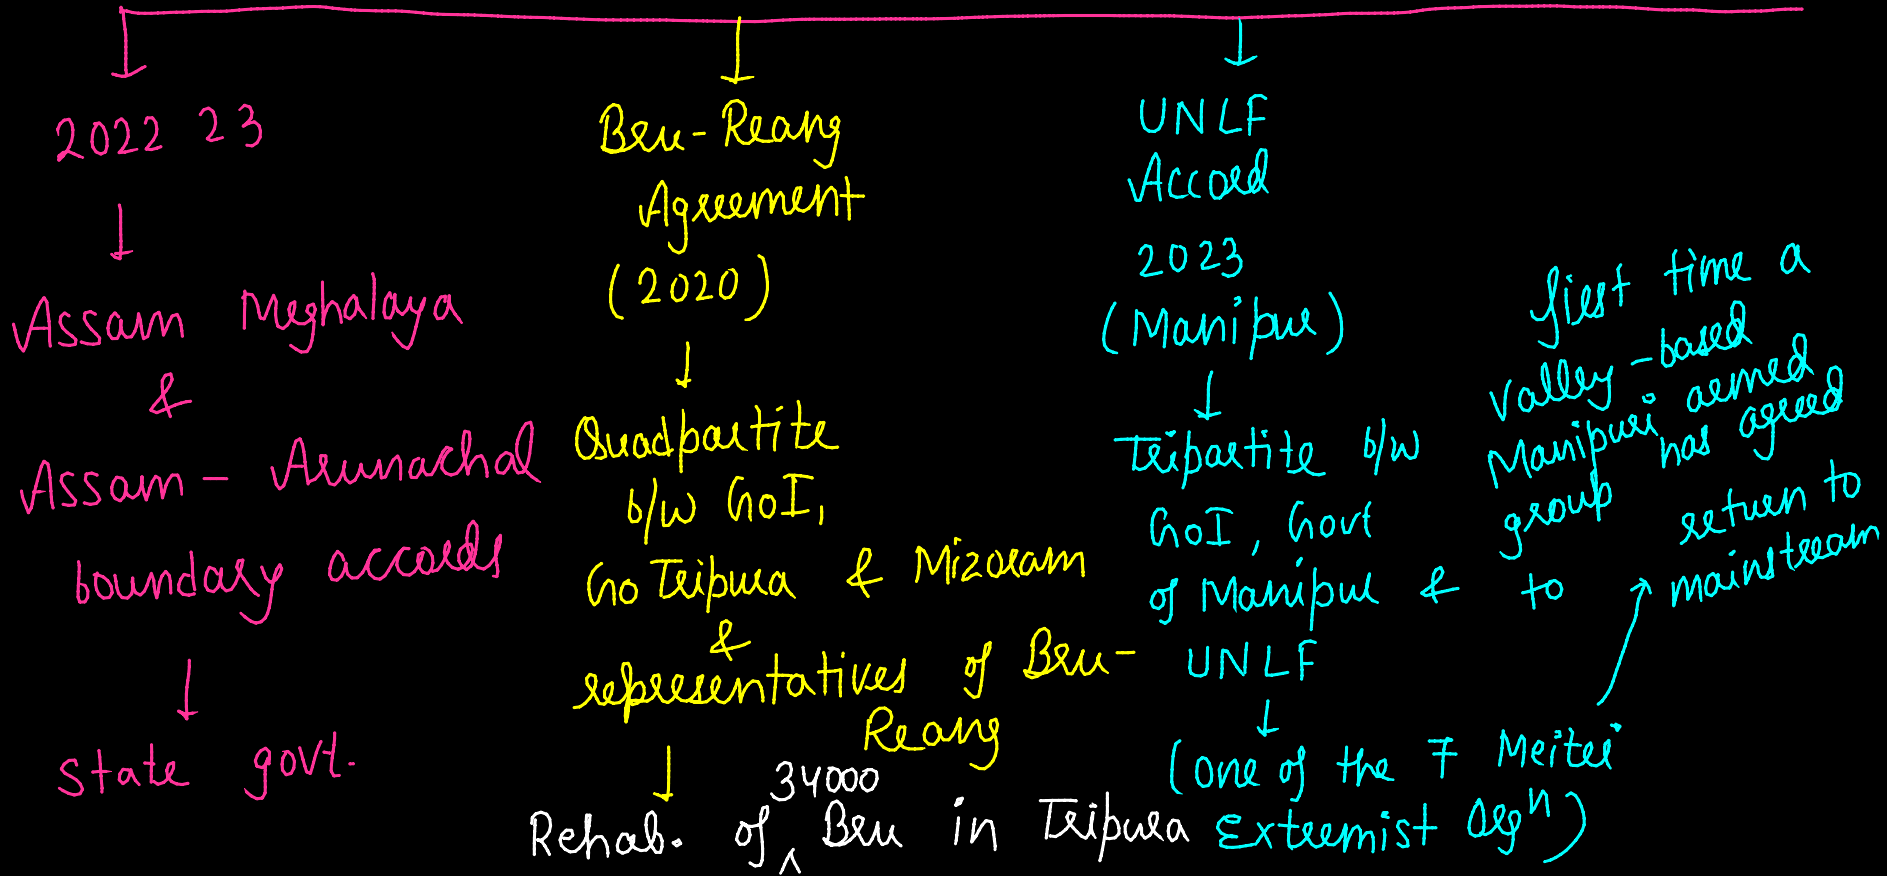 2022 23
Assam Meghalaya
&
Assam - Arunachal
boundary accords
State govt.
Bru-Reang
Agreement
(2020)
Quadpartite
b/w GoI,
Go Tripura & Mizoram
&
representatives of Bru-
Reang
34000
Rehab. of ^ Bru in Tripura
UNLF
Accord
2023
(Manipur)
Tripartite b/w
GoI, Govt
of Manipur &
UNLF
(one of the 7 Meitei
Extremist Orgⁿ)
first time a
valley-based
Manipuri armed
group has agreed
to return to
mainstream